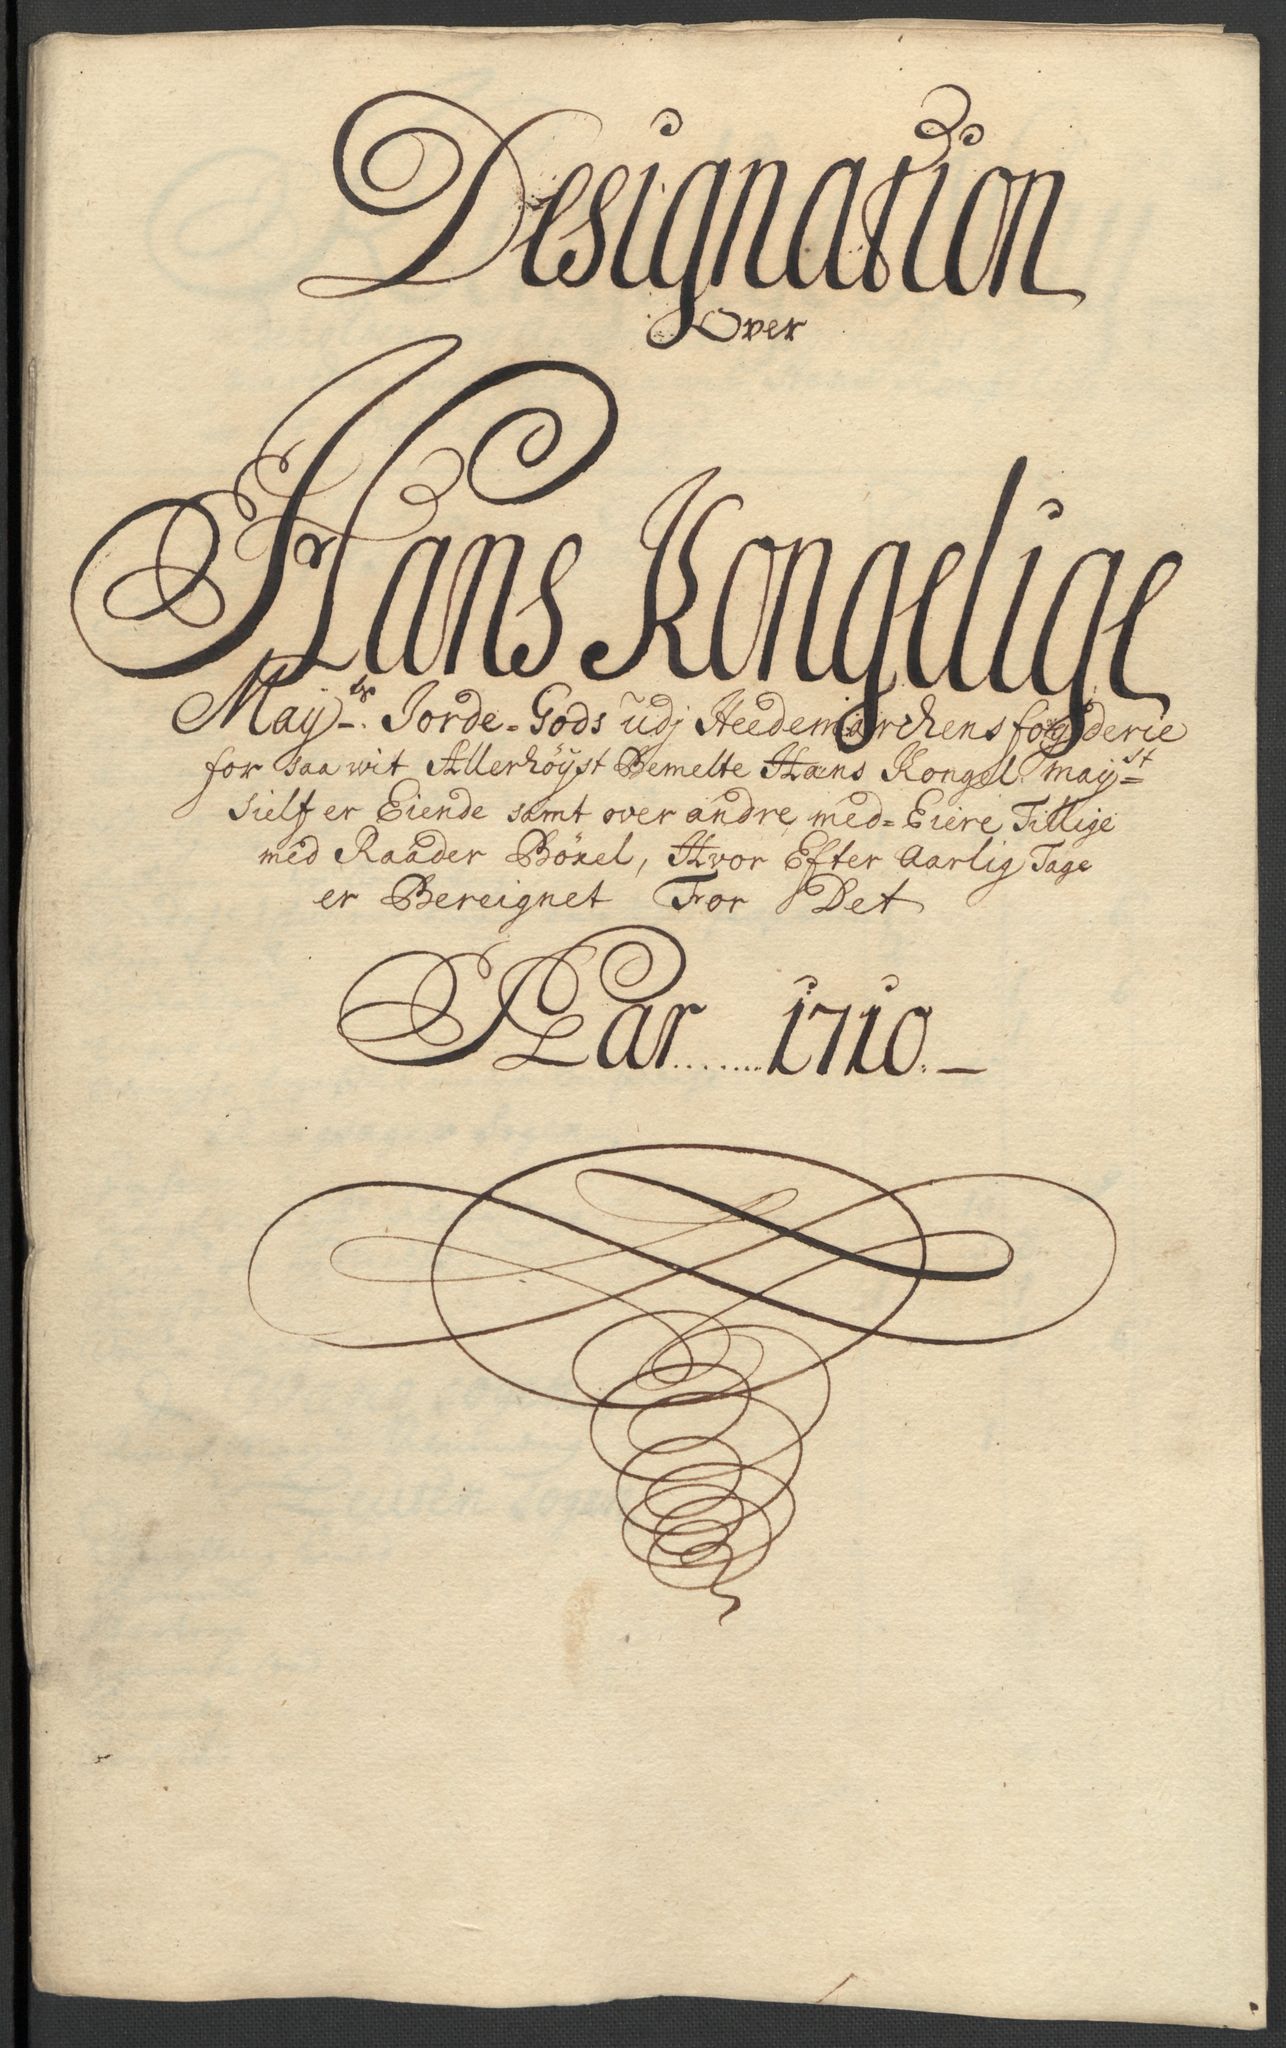 Designation
Over
Hans Kongelige
May:tz Jorde-Gods udj Heedemarchens fogderie
for saa wit Allerhöyst Bemelte Hans Kongel: may:st
sielf er Eiende samt over andre med-Eiere Tillige
med Raader Böxel, Hvor Efter Aarlig Tage
er Bereignet For Det
Aar ....... 1710. —